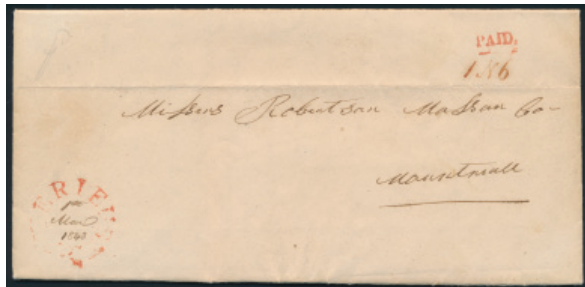 PAID.
1N6
Messrs Robertson Masson Co-
Montreal
ERIEU
1st
Mar
1840